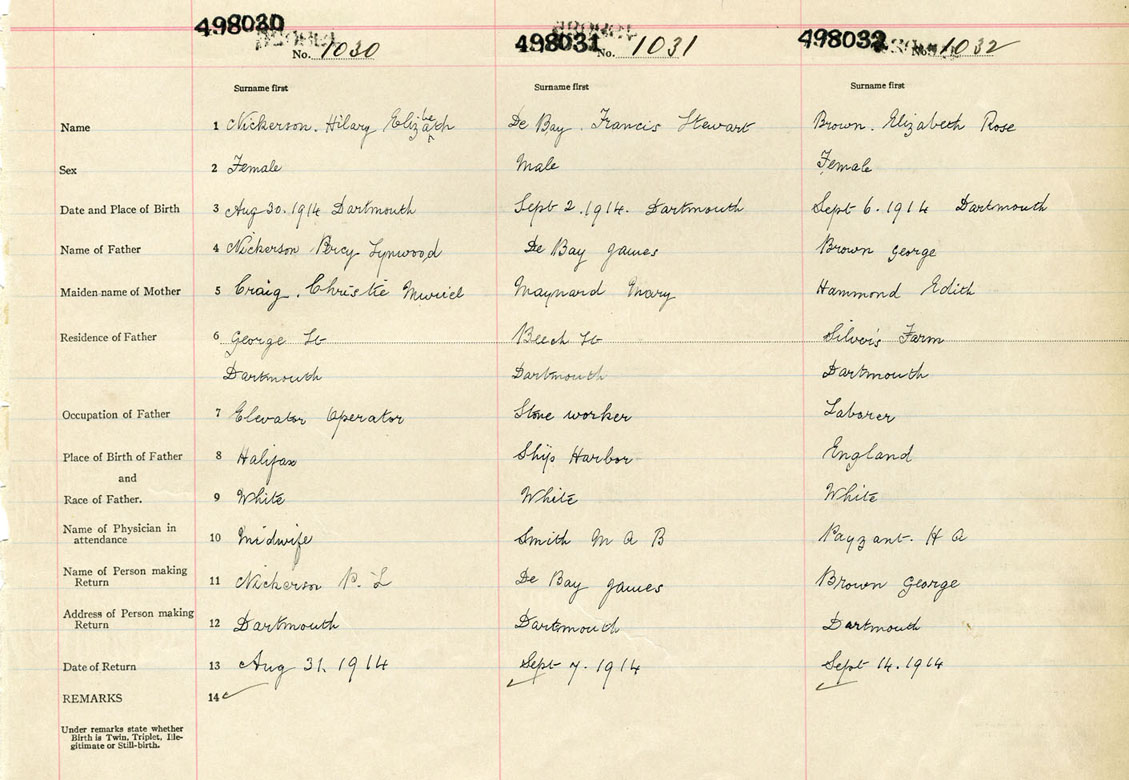 498030 498031 498032
No. 1030 No. 1031 No. 1032
Surname first Surname first Surname first
Name 1 Nickerson. Hilary Elizabeth De Bay. Francis Stewart Brown. Elizabeth Rose
Sex 2 Female Male Female
Date and Place of Birth 3 Aug 30. 1914 Dartmouth Sept 2. 1914. Dartmouth Sept 6. 1914 Dartmouth
Name of Father 4 Nickerson Percy Lynwood De Bay James Brown George
Maiden name of Mother 5 Craig. Christie Muriel Maynard Mary Hammond Edith
Residence of Father 6 George St Beech St Silver's Farm
Dartmouth Dartmouth Dartmouth
Occupation of Father 7 Elevator Operator Stone worker Laborer
Place of Birth of Father 8 Halifax Ship Harbor England
and
Race of Father. 9 White White White
Name of Physician in
attendance 10 Midwife Smith M A B Payzant. H A
Name of Person making
Return 11 Nickerson P. L De Bay James Brown George
Address of Person making
Return 12 Dartmouth Dartmouth Dartmouth
Date of Return 13 Aug 31. 1914 Sept 7. 1914 Sept 14. 1914
REMARKS 14
Under remarks state whether
Birth is Twin, Triplet, Ille-
gitimate or Still-birth.